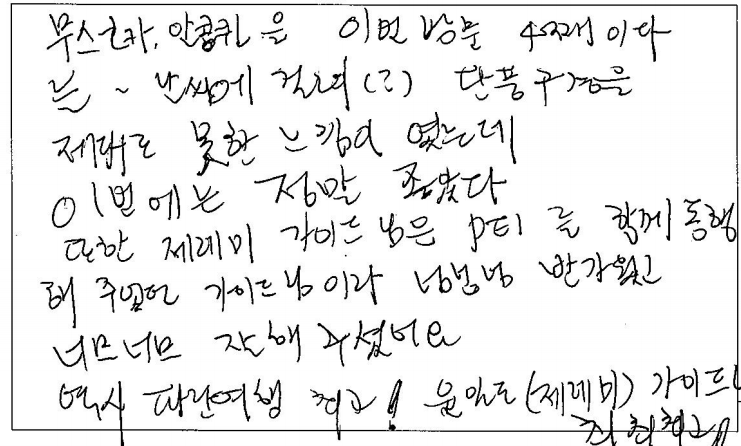 무스코카, 알콩퀸 을 이번 방문 4번째이다
늘 ~ 날씨에 걸려(?) 단풍구경을
제대로 못한 느낌이 였는데
이번에는 정말 좋았다
또한 제레미 가이드님은 PEI 를 함께 동행
해 주셨던 가이드님이라 넘넘넘 반가웠고
너무너무 잘해 주셨어요
역시 파란여행 최고! 윤일도(제레미) 가이드님
최최최고!!